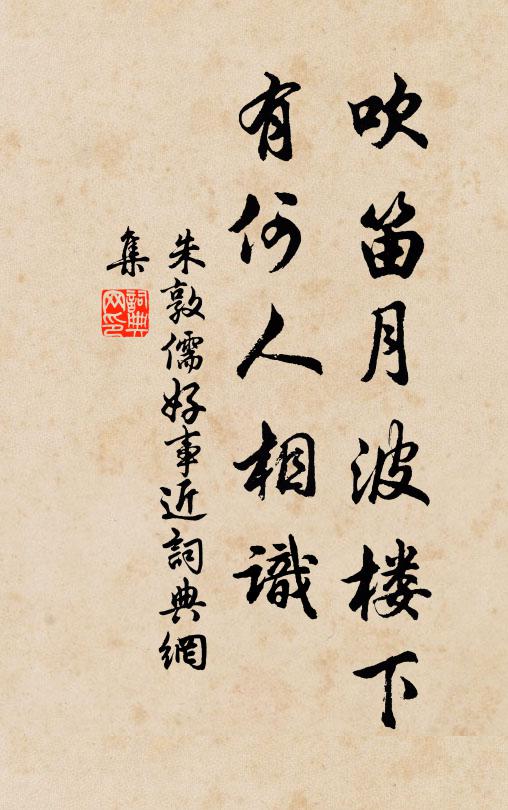 吹笛月波楼下
有何人相識
朱敦儒好事近詞典網
集
詞典
网印